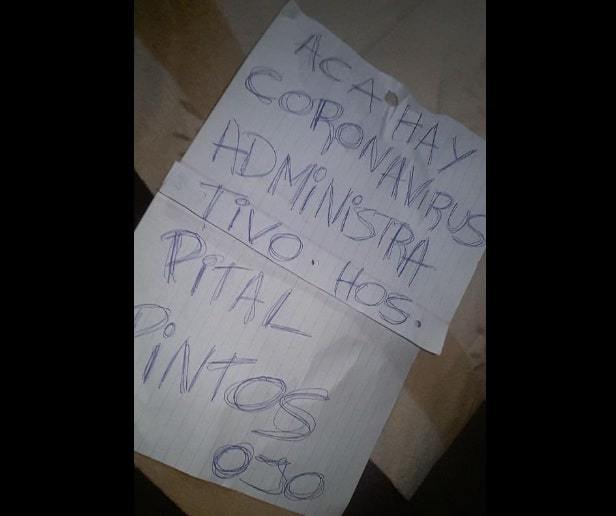 ACA HAY
CORONAVIRUS
ADMiNiSTRA
TiVO. HOS.
PiTAL
PiNTOS
OJO